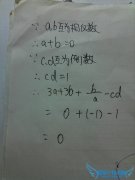 ∵ a,b互为相反数
∴ a+b=0
∵ c,d互为倒数
∴ cd=1
∴ 3a+3b+b/a-cd
= 0+(-1)-1
= 0